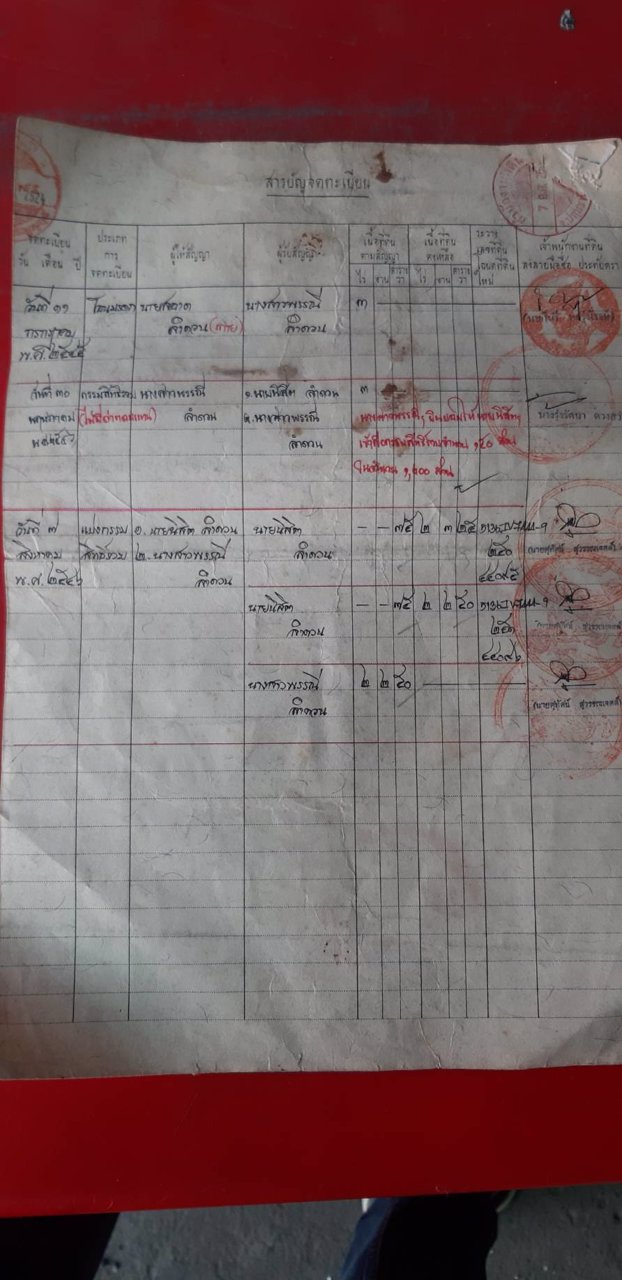 สารบัญจดทะเบียน
จดทะเบียน
วัน เดือน ปี
ประเภท
การ
จดทะเบียน
ผู้ให้สัญญา
ผู้รับสัญญา
เนื้อที่ดิน
ตามสัญญา
ไร่ งาน ตารางวา
เนื้อที่ดิน
คงเหลือ
ไร่ งาน ตารางวา
ระวาง
เลขที่ดิน
โฉนดที่ดิน
ใหม่
เจ้าพนักงานที่ดิน
ลงลายมือชื่อ ประทับตรา
วันที่ ๑๑ โอนมรดก นายสอาด นางสาวพรรณี ๓ — —
กรกฎาคม ลำดวน (ตาย) ลำดวน
พ.ศ. ๒๕๔๕
วันที่ ๓๐ กรรมสิทธิ์รวม นางสาวพรรณี ๑. นายนิสิต ลำดวน ๓ — —
พฤษภาคม (ไม่มีค่าตอบแทน) ลำดวน ๒. นางสาวพรรณี
พ.ศ. ๒๕๔๖ ลำดวน
นางสาวพรรณีฯ ยินยอมให้นายนิสิตฯ
เข้าถือกรรมสิทธิ์รวมจำนวน
ในจำนวน ๑,๒๐๐ ส่วน
วันที่ ๗ แบ่งกรรม ๑. นายนิสิต ลำดวน นายนิสิต — — ๗๕ ๒ ๓ ๒๕
สิงหาคม สิทธิ์รวม ๒. นางสาวพรรณี ลำดวน ๒๕๐
พ.ศ. ๒๕๔๖ ลำดวน ๔๔๐๙๕
นายนิสิต — — ๗๕ ๒ ๒ ๕๐
ลำดวน ๒๕๑
๔๔๐๙๖
นางสาวพรรณี ๒ ๒ ๕๐ —
ลำดวน